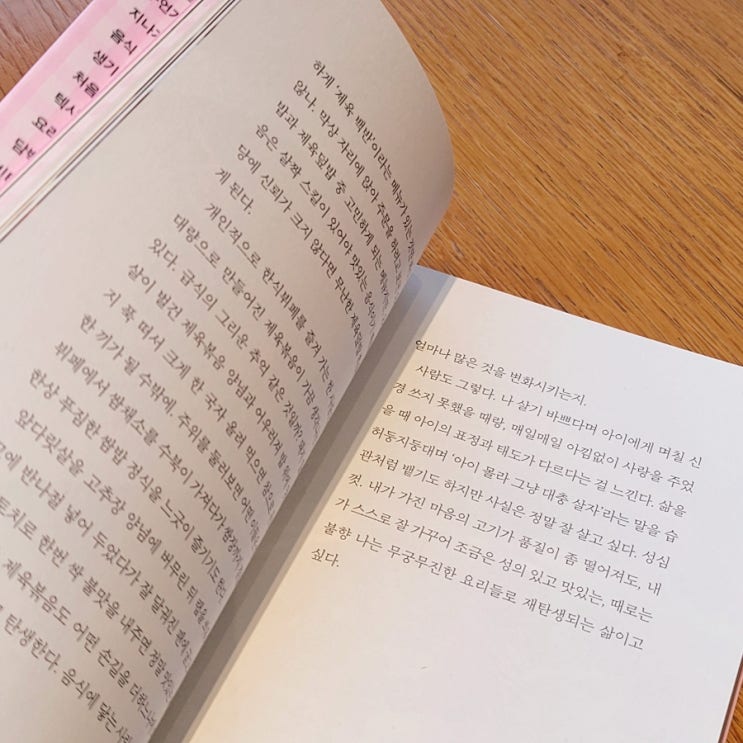 연기
지나
음식
생기
처음
텍스
요리
담
하게 '제육 백반'이라는 메뉴가 있는
않나. 막상 자리에 앉아 주문을 하려고
밥과 제육덮밥 중 고민하게 되는 메뉴
음은 살짝 스킬이 있어야 맛있는 음식
당에 신뢰가 크지 않다면 무난한 제육덮밥을
게 된다.
개인적으로 한식뷔페를 즐겨 가는
대량으로 만들어진 제육볶음이 가끔
있다. 급식의 그리운 추억 같은 것일까?
살이 벌건 제육볶음 양념과 어우러져 밥
지 푹 떠서 크게 한 국자 올려 먹으면
한 끼가 될 수밖에. 주위를 둘러보면 어떤
뷔페에서 쌈채소를 수북이 가져다가
한상 푸짐한 쌈밥 정식을 느긋이 즐기기도
앞다릿살을 고추장 양념에 버무린 뒤
에 반나절 넣어 두었다가 잘 달궈진 팬에
토치로 한번 싹 불맛을 내주면 정말
제육볶음도 어떤 손길을 더하느냐
탄생한다. 음식에 닿는
얼마나 많은 것을 변화시키는지.
사람도 그렇다. 나 살기 바쁘다며 아이에게 며칠 신
경 쓰지 못했을 때랑, 매일매일 아낌없이 사랑을 주었
을 때 아이의 표정과 태도가 다르다는 걸 느낀다. 삶을
허둥지둥대며 '아이 몰라 그냥 대충 살자'라는 말을 습
관처럼 뱉기도 하지만 사실은 정말 잘 살고 싶다. 성심
껏. 내가 가진 마음의 고기가 품질이 좀 떨어져도, 내
가 스스로 잘 가꾸어 조금은 성의 있고 맛있는, 때로는
불향 나는 무궁무진한 요리들로 재탄생되는 삶이고
싶다.